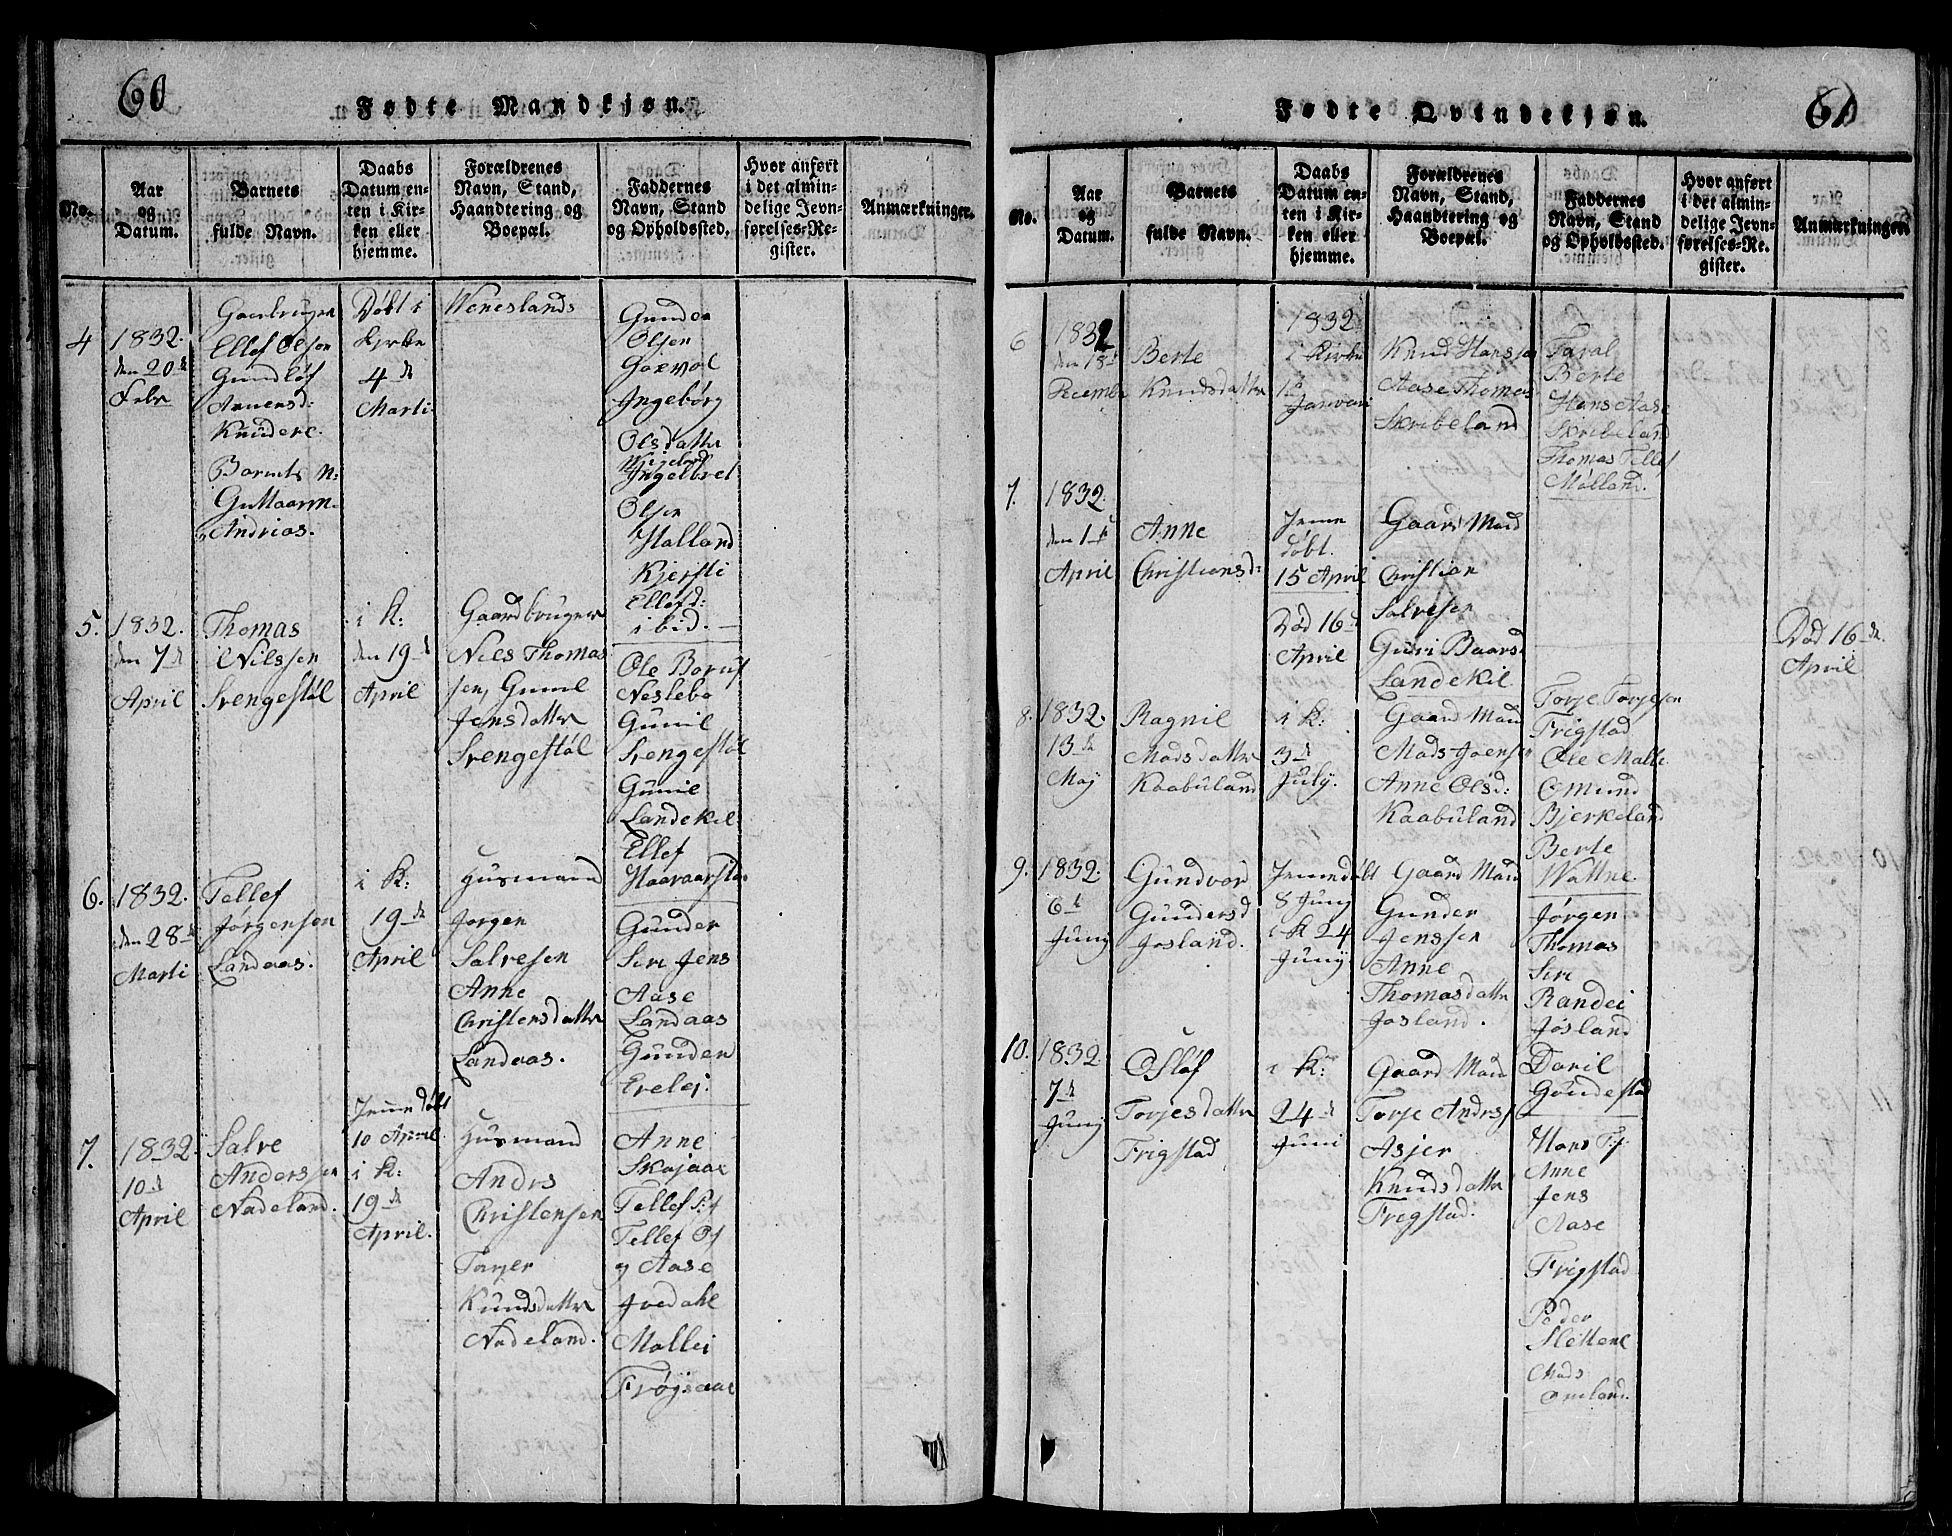 60
Fødte Mandkjøn.
No.
Aar
og
Datum.
Barnets
fulde Navn.
Daabs
Datum en-
ten i Kir-
ken eller
hjemme.
Forældrenes
Navn, Stand,
Haandtering og
Boepæl.
Faddernes
Navn, Stand
og Opholdssted.
Hvor anført
i det almin-
delige Jevn-
førelses-Re-
gister.
Anmærkninger.
4
1832.
den 20de
Febr
Ellef Olsen
Gundlöf
Knudere.
Barnets N:
Andrias.
Døbt i
Kirke
4de
Marti
Weneslands
Gunder
Olsen
Ingebörg
Olsdatter
Ingelbret
Olsen
Halland
Kjersti
Ellefd:
ibid.
5.
1832.
den 7de
April
Thomas
Nilssen
Svengestøl
i K:
den 19de
April
Gaardbruger
Niels Thomas
sen, Gunil
Jensdatter
Svengestøl
Ole Boruf
Neslebo
Gunil
Svengestøl
Gunil
Landekil
Ellef
Haavaarsta
6.
1832.
den 28de
Marti
Tellef
Jørgensen
Landaas.
i K:
19de
April
Husmand
Jørgen
Salvesen
Anne
Christensdatter
Landaas.
Gunder
Siri Jens
Aase
Landaas
Gunder
Erelej.
7.
1832.
10de
April
Salve
Anderssen
Nadeland.
Jemedøbt
10 April
i K:
19de
April.
Husmand
Andrs
Christensen
Knudsdatter
Nadeland.
Anne
Skajaae
Tellef
Tellef Of
og Aase
Jvedahl
Mollei
Frøysaae
61
Fødte Qvindekjøn.
No.
Aar
og
Datum.
Barnets
fulde Navn.
Daabs
Datum en-
ten i Kir-
ken eller
hjemme.
Forældrenes
Navn, Stand,
Haandtering og
Boepæl.
Faddernes
Navn, Stand
og Opholdssted.
Hvor anført
i det almin-
delige Jevn-
førelses-Re-
gister.
Anmærkninger.
6
1832
den 18de
Decembr
Berte
Knudsdatter
1832
i Kirke
1ste
Januari
Knud Hanssen
Aase Thomas
Skribeland
Taral
Berte
Hans Aase
Skribeland
Thomas Tellef
Mölland.
7.
1832.
den 1ste
April
Anne
Christensd:
Jeme
døbt.
15 April
Død 16de
April
Gaard Mand
Christian
Salvesen
Guri Baars
Landekil
Død 16de
April
8.
1832.
13de
Maj
Ragnil
Madsdatter
Kaabuland
i K:
3de
July.
Gaard Mand
Mads Joensen
Anne Olsd:
Kaabuland
Torje Torjesen
Frigstad
Ole Malli
Omund
Bjerkeland
Berte
Wattne.
9.
1832.
6te
Junij
Gundvor
Gundersd
Josland.
Jemedøbt
8 Junij
i K 24
Junij
Gaard Mand
Gunder
Jenssen
Anne
Thomasdatter
Josland.
Jørgen
Thomas
Siri
Randei
Jösland
10.
1832.
7de
Junij
Oslöf
Torjesdatter
Frigstad
i K:
24de
Juni
Gaard Mand
Torje Andrss
Asjer
Knudsdatter
Frigstad.
Doril
Göndestad
Hans
Anne
Jens
Aase
Frigstad
Peder
Slettene
Mads
Omland.